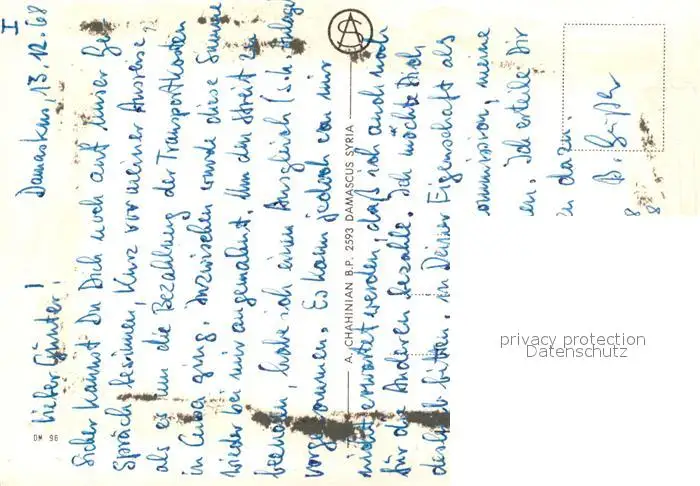 I
Damaskus, 13.12.68
Lieber Günter!
Sicher kannst Du Dich noch auf unser Ge-
spräch besinnen, kurz vor meiner Ausreise,
als es um die Bezahlung der Transportkosten
in Cuba ging. Inzwischen wurde diese Summe
wieder bei mir angemahnt. Um den Streit zu
beenden, habe ich einen Ausgleich (sh. Anlage)
vorgenommen. Es kann jedoch von mir
nicht erwartet werden, daß ich auch noch
für die Anderen bezahle. Ich möchte Dich
deshalb bitten, in Deiner Eigenschaft als
ommission, meine
en. Ich erteile Dir
dazu.
B.
A. CHAHINIAN B.P. 2593 DAMASCUS SYRIA
DM 96
privacy protection
Datenschutz